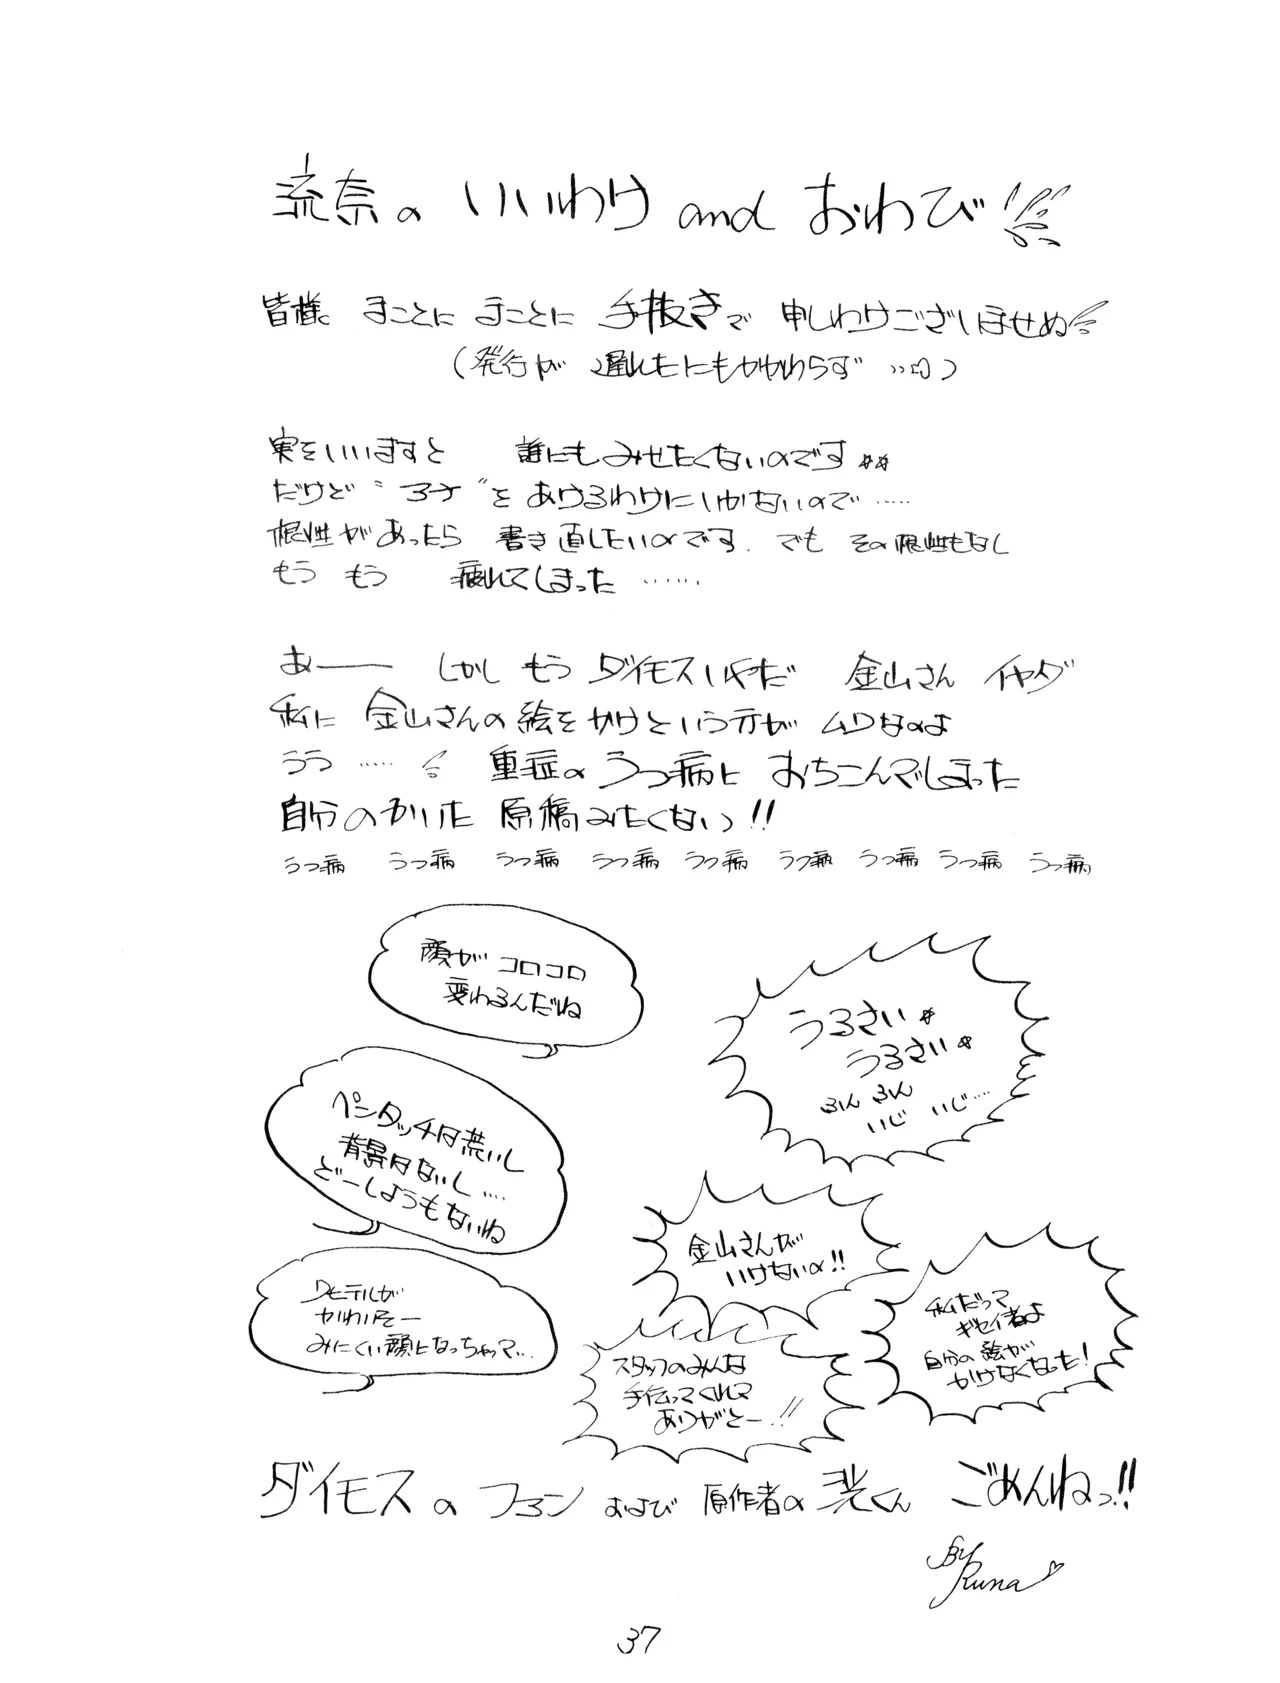 流奈の いいわけ and おわび
皆様 まことに まことに 手抜きで 申しわけございませぬ
(発行が 遅れたにもかかわらず ……)
実をいいますと 誰にもみせたくないのです
だけど をあけるわけにいかないので……
根性があったら 書き直したいのです. でも その根性もなし
もう もう 疲れてしまった ……
あーー しかし もう ダイモスいやだ 金山さん イヤダ
私に 金山さんの絵をかけという方が ムリなのよ
うう …… 重症の うつ病に おちこんでしまった
自分のかいた 原稿みたくないっ!!
うつ病 うつ病 うつ病 うつ病 うつ病 うつ病 うつ病 うつ病 うつ病
顔が コロコロ
変わるんだね
うるさい
うるさい
ふん ふん
いじ いじ…
ペンタッチは荒いし
背景はないし…
どーしようもないね
金山さんが
いけないの!!
リヒテルが
かわいそー
みにくい顔になっちゃって…
私だって
ギセイ者よ
自分の絵が
かけなくなった!
スタッフのみんな
手伝ってくれて
ありがとー!!
ダイモスの ファン および 原作者の くん ごめんねっ!!
By
Runa
37